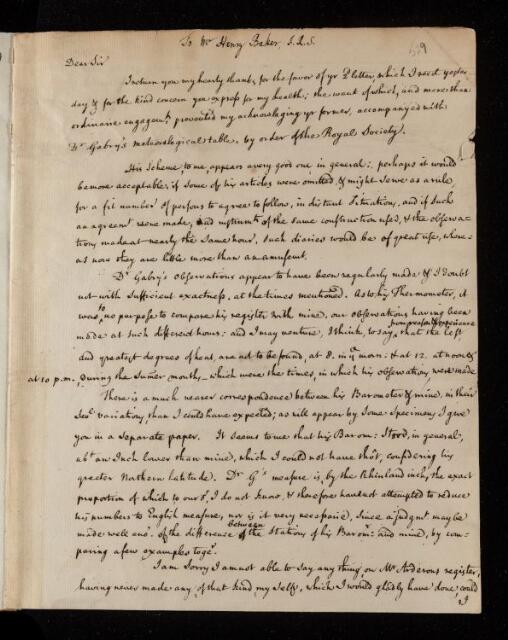 To Mr. Henry Baker, F.R.S.
Dear Sir
I return you my hearty thanks for the favor of yr 2d letter, which I rec'd yester
day & for the kind concern you express for my health; the want of which, and more than
ordinarie engagemts prevented my acknowledging yr former, accompanyed with
Dr Gabry's meteorological table, by order of the Royal Society.
His scheme, to me, appears a very good one in general: perhaps it would
be more acceptable if some of his articles were omitted, & might serve as a rule,
for a fit number of persons to agree to follow, in distant situations, and if such
an agreemt were made, and instrumts of the same construction used, & the observa-
tions made at nearly the same hour, such diaries would be of great use, where-
as now they are little more than an amusemt.
Dr Gabry's observations appear to have been regularly made & I doubt
not with sufficient exactness, at the times mentioned. As to his Thermometer, it
was to no purpose to compare his register with mine, our observations having been
made at such different hours: and I may venture, I think, to say, from experience that the least
and greatest degrees of heat, are not to be found, at 8. in ye morn: that 12. at noon &
at 10 p.m. during the summer months, which were the times, in which his observations were made
There is a much nearer correspondence between his Barometer & mine, in their
sevl variations, than I could have expected; as will appear by some specimens I give
you in a separate paper. It seems to me that his Barom: stood, in general,
abt an Inch lower than mine, which I could not have thot, considering his
greater Northern latitude. Dr G's measure is, by the Rhinland inch, the exact
proportion of which to ours, I do not know, & therefore have not attempted to reduce
his numbers to English measure, nor is it very necessarie, since a judgmt may be
made well eno: of the difference between the stations of his Baromr and mine, by com-
paring a few examples togr.
I am sorry I am not able to say any thing, on Mr Arderons register,
having never made any of that kind my self, which I would gladly have done, could
I